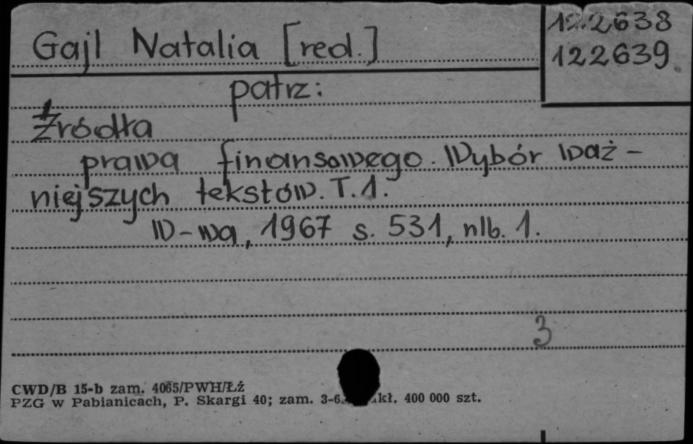 Gajl Natalia [red.]
122638
122639
patrz:
Źródła
prawa finansowego. Wybór waż-
niejszych tekstów. T. 1.
W-wa, 1967 s. 531, nlb. 1.
3
CWD/B 15-b zam. 4065/PWH/Łź
PZG w Pabianicach, P. Skargi 40; zam. 3-6 kł. 400 000 szt.